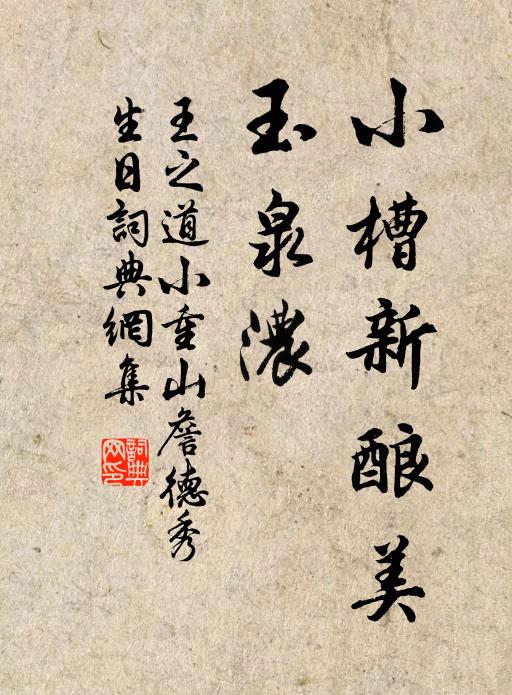 小槽新酿美
玉泉濃
王之道小重山詹德秀
生日詞典網集
詞典網印